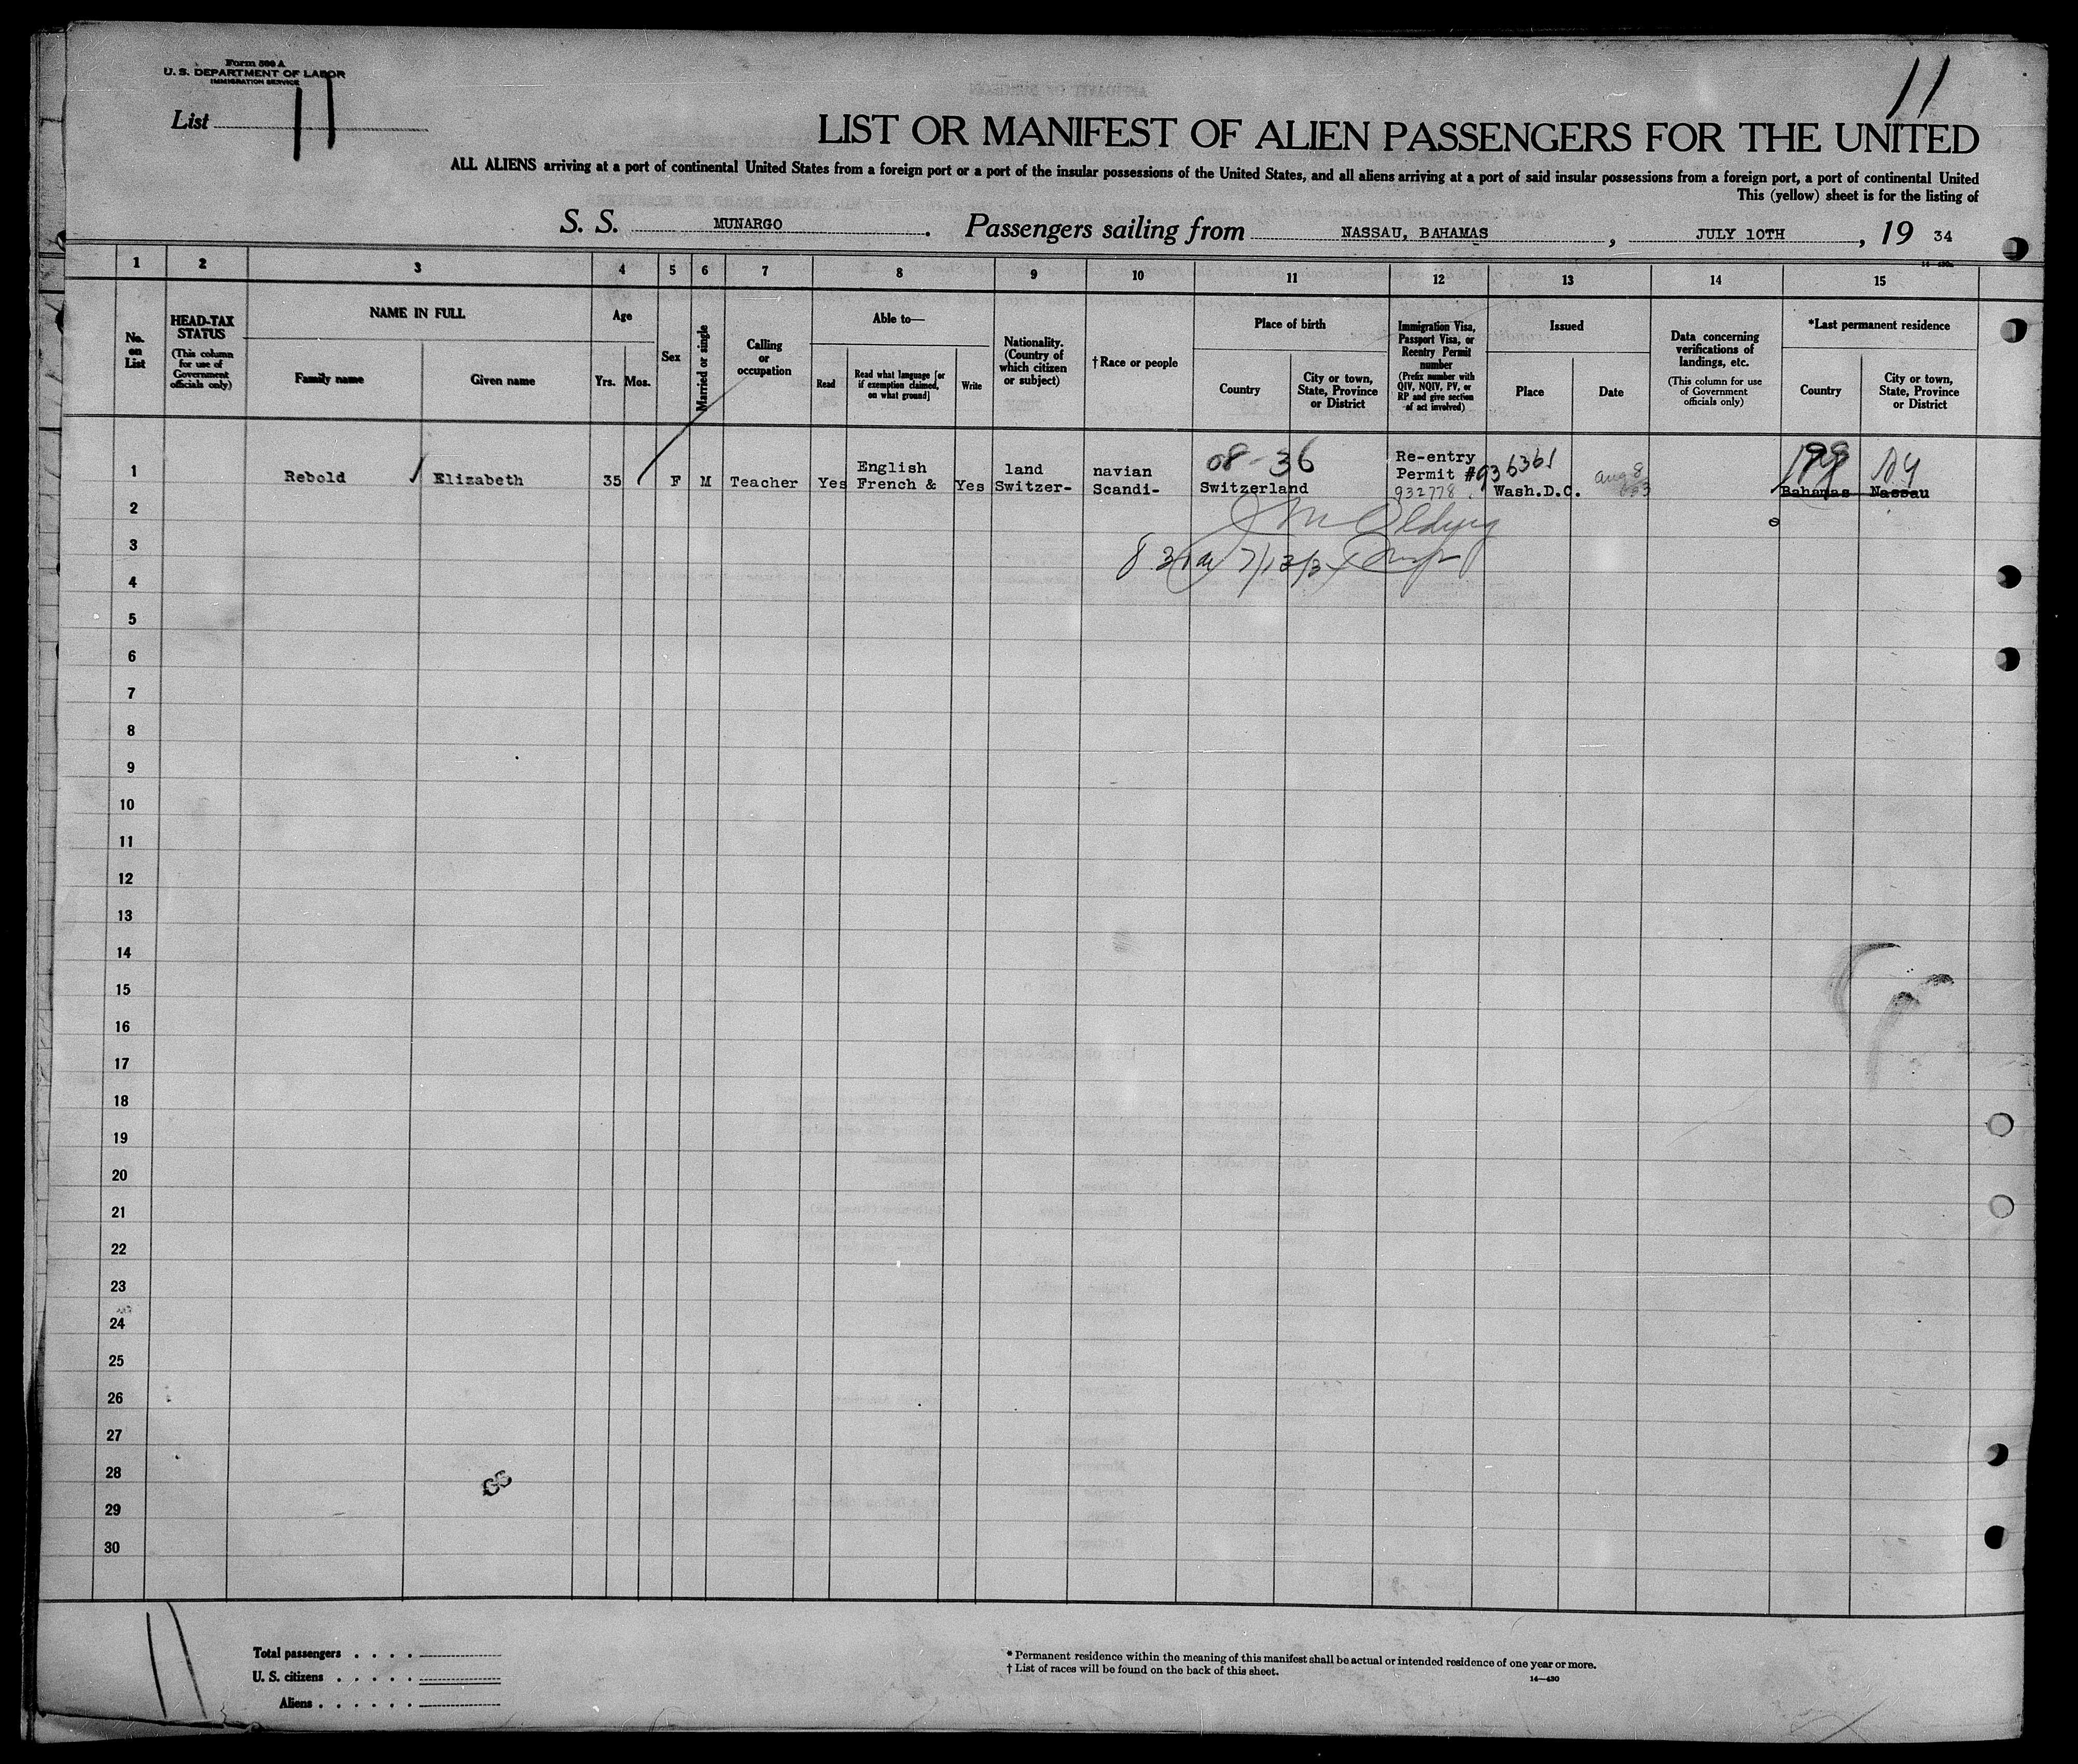 Form 500 A
U. S. DEPARTMENT OF LABOR
IMMIGRATION SERVICE
List 11
11
LIST OR MANIFEST OF ALIEN PASSENGERS FOR THE UNITED
ALL ALIENS arriving at a port of continental United States from a foreign port or a port of the insular possessions of the United States, and all aliens arriving at a port of said insular possessions from a foreign port, a port of continental United
This (yellow) sheet is for the listing of
S. S. MUNARGO. Passengers sailing from NASSAU, BAHAMAS, JULY 10TH, 19 34
1 2 3 4 5 6 7 8 9 10 11 12 13 14 15
No. on List
HEAD-TAX STATUS
(This column for use of Government officials only)
NAME IN FULL
Family name
Given name
Age
Yrs. Mos.
Sex
Married or single
Calling or occupation
Able to—
Read
Read what language [or if exemption claimed, on what ground]
Write
Nationality. (Country of which citizen or subject)
†Race or people
Place of birth
Country
City or town, State, Province or District
Immigration Visa, Passport Visa, or Reentry Permit number
(Prefix number with QIV, NQIV, PV, or RP and give section of act involved)
Issued
Place
Date
Data concerning verifications of landings, etc.
(This column for use of Government officials only)
*Last permanent residence
Country
City or town, State, Province or District
08-36
English land navian Re-entry
Permit #936361
1 Rebold Elizabeth 35 F M Teacher Yes French & Yes Switzer- Scandi- Switzerland 932778 Wash.D.C. Aug 8 Bahamas Nassau
2
3
4
5
6
7
8
9
10
11
12
13
14
15
16
17
18
19
20
21
22
23
24
25
26
27
28
29
30
Total passengers . . . .
U. S. citizens . . . . .
Aliens . . . . . .
* Permanent residence within the meaning of this manifest shall be actual or intended residence of one year or more.
† List of races will be found on the back of this sheet.
14—430
11